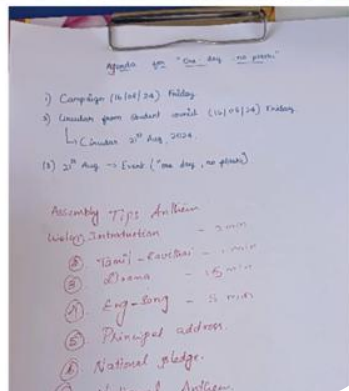 Agenda for "One day no plastic"
1) Campaign (16/08/24) Friday
2) Circular from Student council (16/08/24) Friday
↳ Circular 21st Aug 2024
(3) 21st Aug → Event ("one day, no plastic)
Assembly Tips Anthem
Introduction - 2 min
② Tamil - Kavithai - 1 min
③ Drama - 15 min
④ Eng-Song - 5 min
⑤ Principal address.
⑥ National pledge.
Anthem